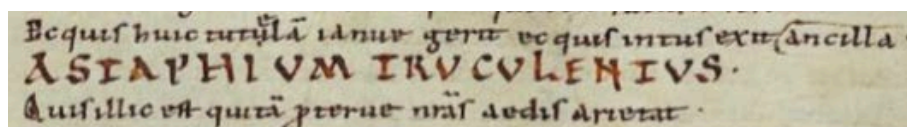 Ecquis huic tutelā ianue gerit ecquis intus exit ancilla
ASTAPHIUM TRUCULENTUS·
Quis illic est qui tā p̱terue nr̄as aedis arietat·